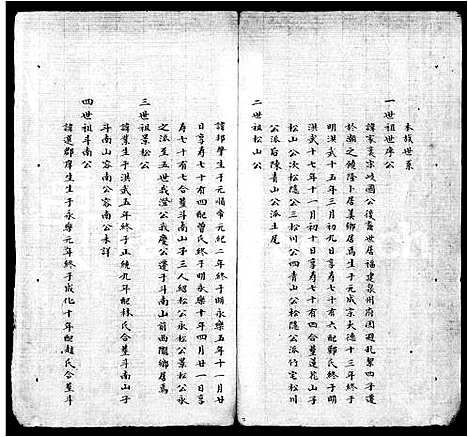 本族世系
一世祖世序公
諱家寅宗岐國公後裔世居福建泉州府因避亂挈四子遷
於潮之饒隆卜居美鄉居焉生于元成宗大德十三年終于
明洪武十五年三月初九日享壽七十有六配鄭氏終于明
洪武十七年十一月初十日享壽七十有四合塟蓮花山子
松山公次松隨公三松川公四青山公松隨公派竹定松川
公派后陳青山公派土尾
二世祖松山公
諱邦聲生于元順帝元紀二年終于明永樂五年十一月廿
日享壽七十有四配曾氏終于明永樂十年四月廿一日享
壽七十有七合塟斗南山子三人紹松公永松公景松公永
之派至五世我澄公我慶公遷于斗南山前西隴鄉居焉
三世祖景松公
諱業生于洪武五年終于正統九年配林氏合塟斗南山子
斗南公容南公未詳
四世祖斗南公
諱選郡庠生生于永樂元年終于成化十年配趙氏合塟斗